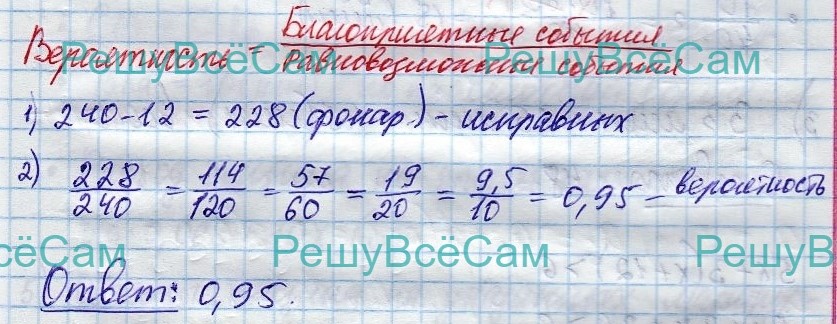 Вероятность = Благоприятные события
равновозможные события
РешуВсёСам РешуВсёСам
1) 240-12 = 228 (фонар.) - исправных
2) 228/240 = 114/120 = 57/60 = 19/20 = 9,5/10 = 0,95 - вероятность
всёСам РешуВсёСам РешуВ
Ответ: 0,95.